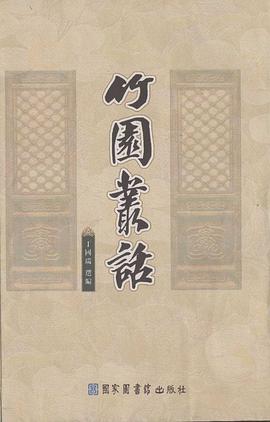 竹園叢話
丁國瑞 選編
國家圖書館出版社